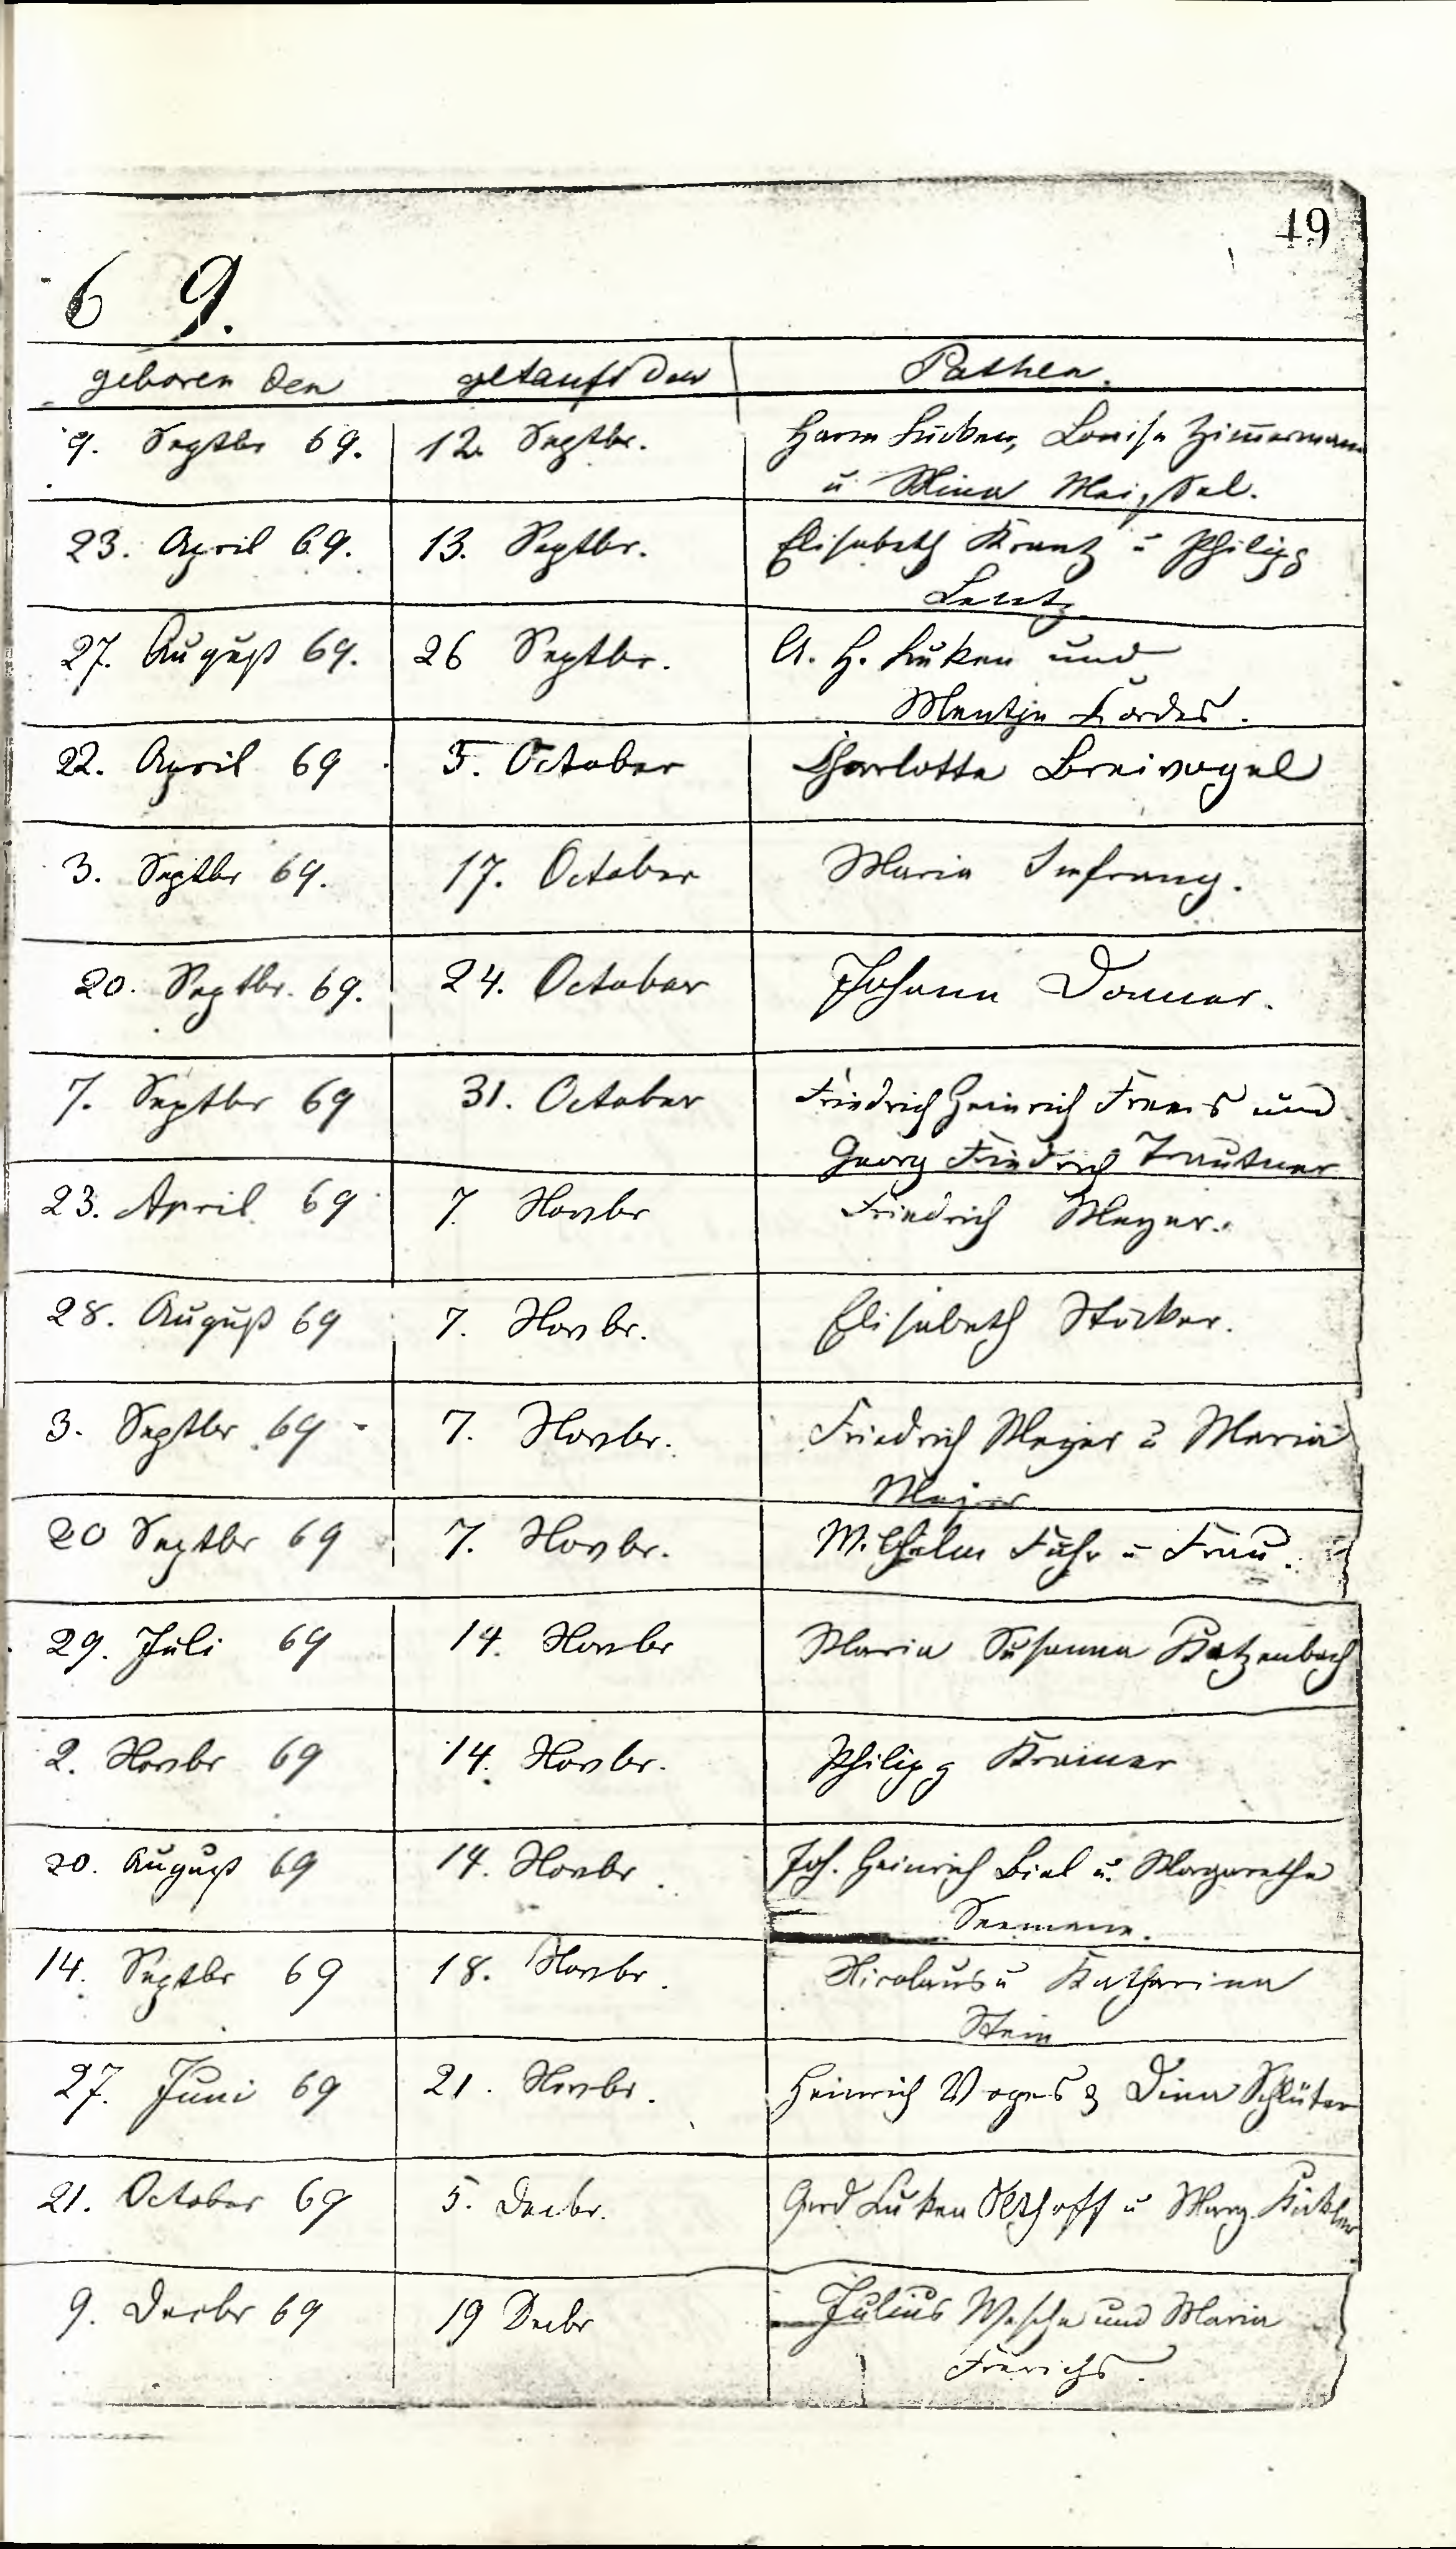 49
6 9.
geboren den getauft den Pathen.
9. Septbr 69. 12. Septbr. Harm Lücken, Louise Zimmermann
u Mina
23. April 69. 13. Septbr. Elisabeth Krantz u Philipp
Lentz
27. August 69. 26 Septbr. A. H. Lüken und
Mentje Cordes.
22. April 69 5. October Charlotte Breivogel
3. Septbr 69. 17. October Maria
20. Septbr. 69. 24. October Johann Donner.
7. Septbr 69 31. October Friedrich Heinrich Frers und
Georg Friedrich Trautner
23. April 69 7. Novbr Friedrich Meyer.
28. August 69 7. Novbr. Elisabeth Stöcker.
3. Septbr 69 7. Novbr. Friedrich Meyer u Maria
Meyer
20 Septbr 69 7. Novbr. Wilhelm Fuhr u Frau.
29. Juli 69 14. Novbr Maria Susanna Katzenbach
2. Novbr 69 14. Novbr. Philipp Kramer
20. August 69 14. Novbr. Joh. Heinrich Biel u. Margarethe
Seemann.
14. Septbr 69 18. Novbr. Nicolaus u Katharina
Stein
27. Juni 69 21. Novbr. Heinrich Voges & Dina Schlüter
21. October 69 5. Decbr. Gerd Luken Olthoff u Marg.
9. Decbr 69 19 Decbr Julius Wesche und Maria
Frerichs.